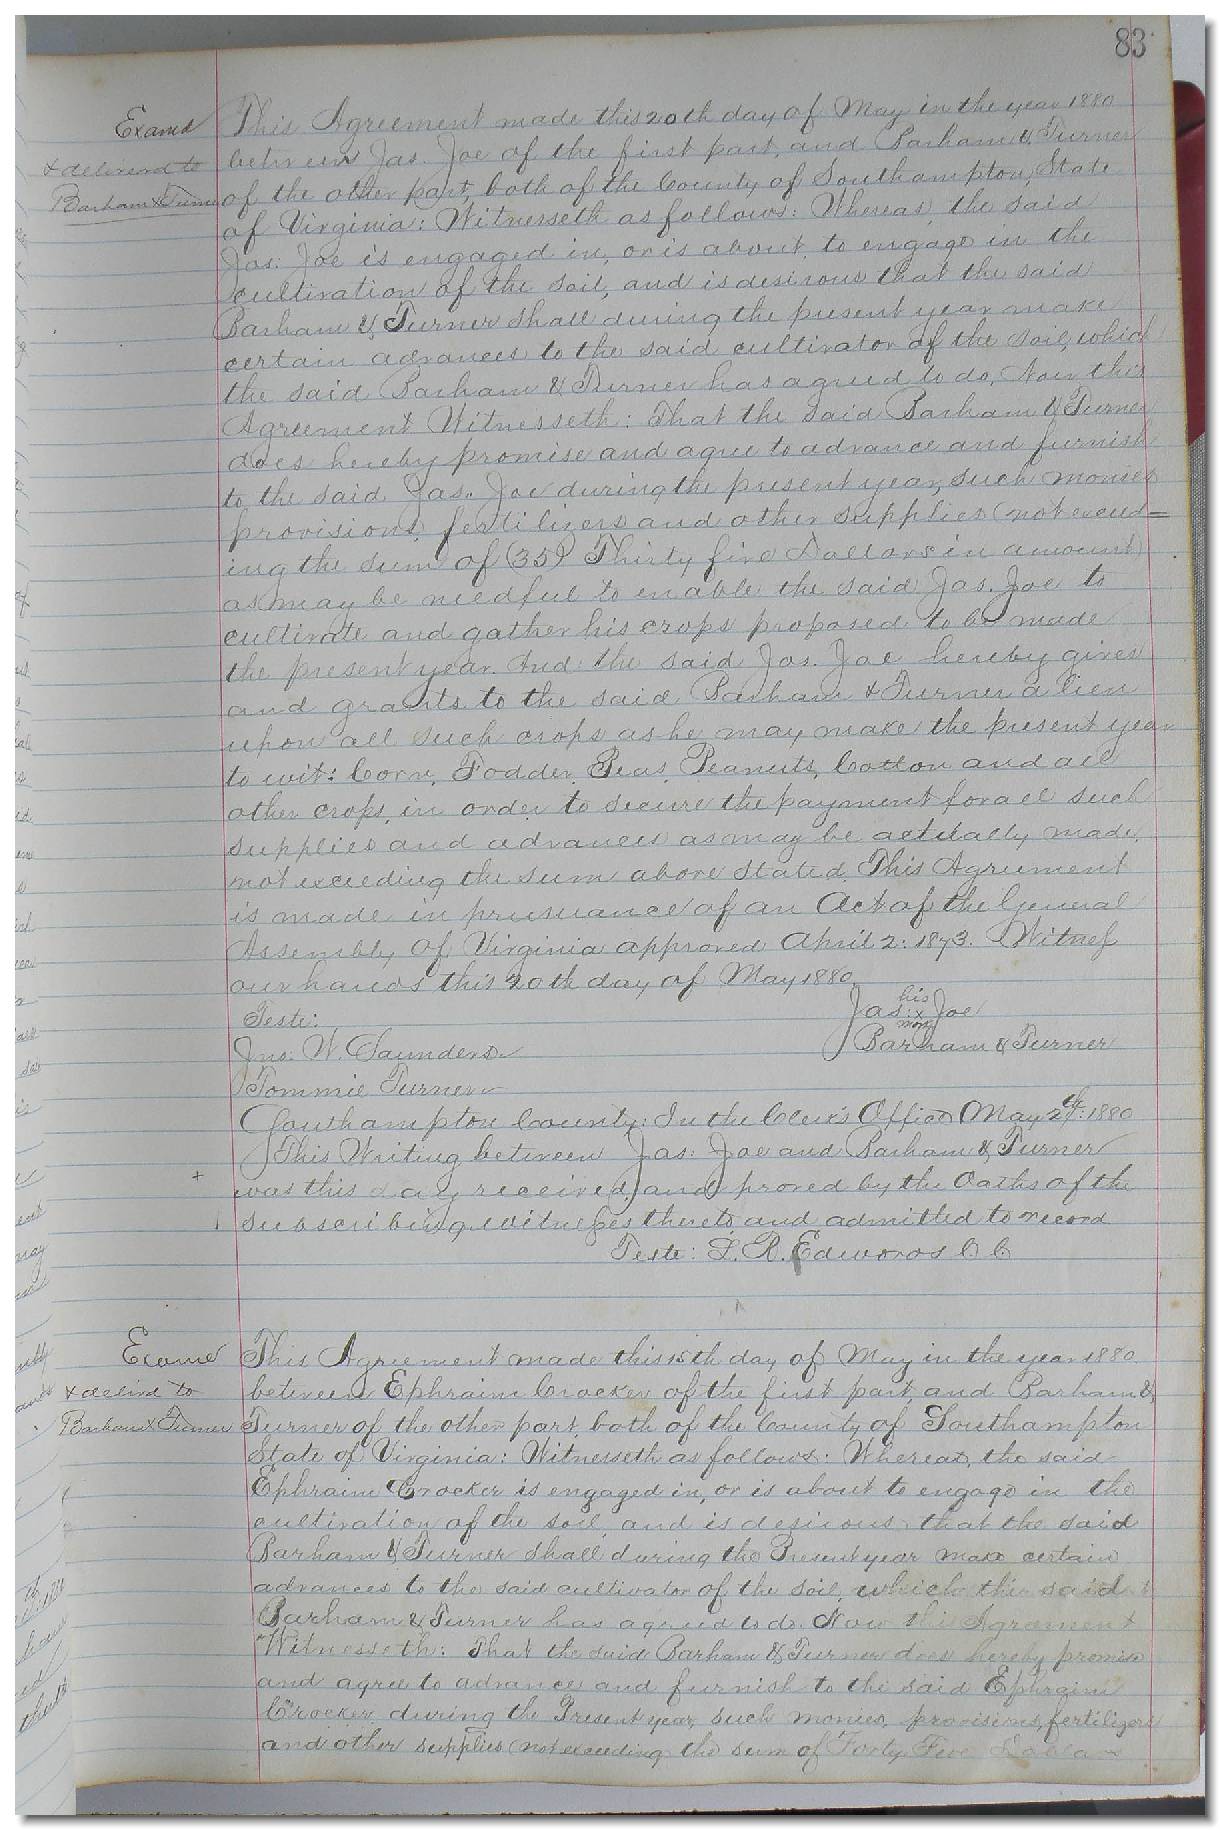 83
Examd
& deliverd to
Barham & Turner
This Agreement made this 20th day of May in the year 1880
between Jas. Joe of the first part, and Barham & Turner
of the other part, both of the County of Southampton, State
of Virginia: Witnesseth as follows: Whereas, the said
Jas. Joe is engaged in, or is about, to engage in the
cultivation of the soil, and is desirous that the said
Barham & Turner shall during the present year make
certain advances to the said cultivator of the soil, which
the said Barham & Turner has agreed to do, Now this
Agreement Witnesseth: That the said Barham & Turner
does hereby promise and agree to advance and furnish
to the said Jas. Joe during the present year, such monies
provisions, fertilizers and other supplies (not exceed=
ing the sum of (35) Thirty five Dollars in amount)
as may be needful to enable the said Jas. Joe to
cultivate and gather his crops proposed to be made
the present year. And the said Jas. Joe hereby gives
and grants to the said Barham & Turner a lien
upon all such crops as he may make the present year
to wit: Corn, Fodder, Peas, Peanuts, Cotton and all
other crops, in order to secure the payment for all such
supplies and advances as may be actually made,
not exceeding the sum above stated. This Agreement
is made in pursuance of an Act of the General
Assembly of Virginia approved April 2: 1873. Witness
our hands this 20th day of May 1880
Teste:
Jno. W. Saunders
Tommie Turner
his
Jas. x Joe
mark
Barham & Turner
Southampton County: In the Clerk's Office May 24th: 1880
This Writing between Jas: Joe and Barham & Turner
was this day received, and proved by the Oaths of the
subscribing witnesses thereto and admitted to record
Teste: L. R. Edwards C. C.
Examd
& delivd to
Barham & Turner
This Agreement made this 15th day of May in the year 1880
between Ephraim Crocker of the first part, and Barham &
Turner of the other part, both of the County of Southampton
State of Virginia: Witnesseth as follows: Whereas, the said
Ephraim Crocker is engaged in, or is about to engage in the
cultivation of the soil, and is desirous that the said
Barham & Turner shall during the Present year make certain
advances to the said cultivator of the soil, which the said
Barham & Turner has agreed to do. Now this Agrement
Witnesseth: That the said Barham & Turner does hereby promise
and agree to advance and furnish to the said Ephraim
Crocker during the Present year, such monies, provisions, fertilizers
and other supplies (not exceeding the sum of Forty Five Dollars